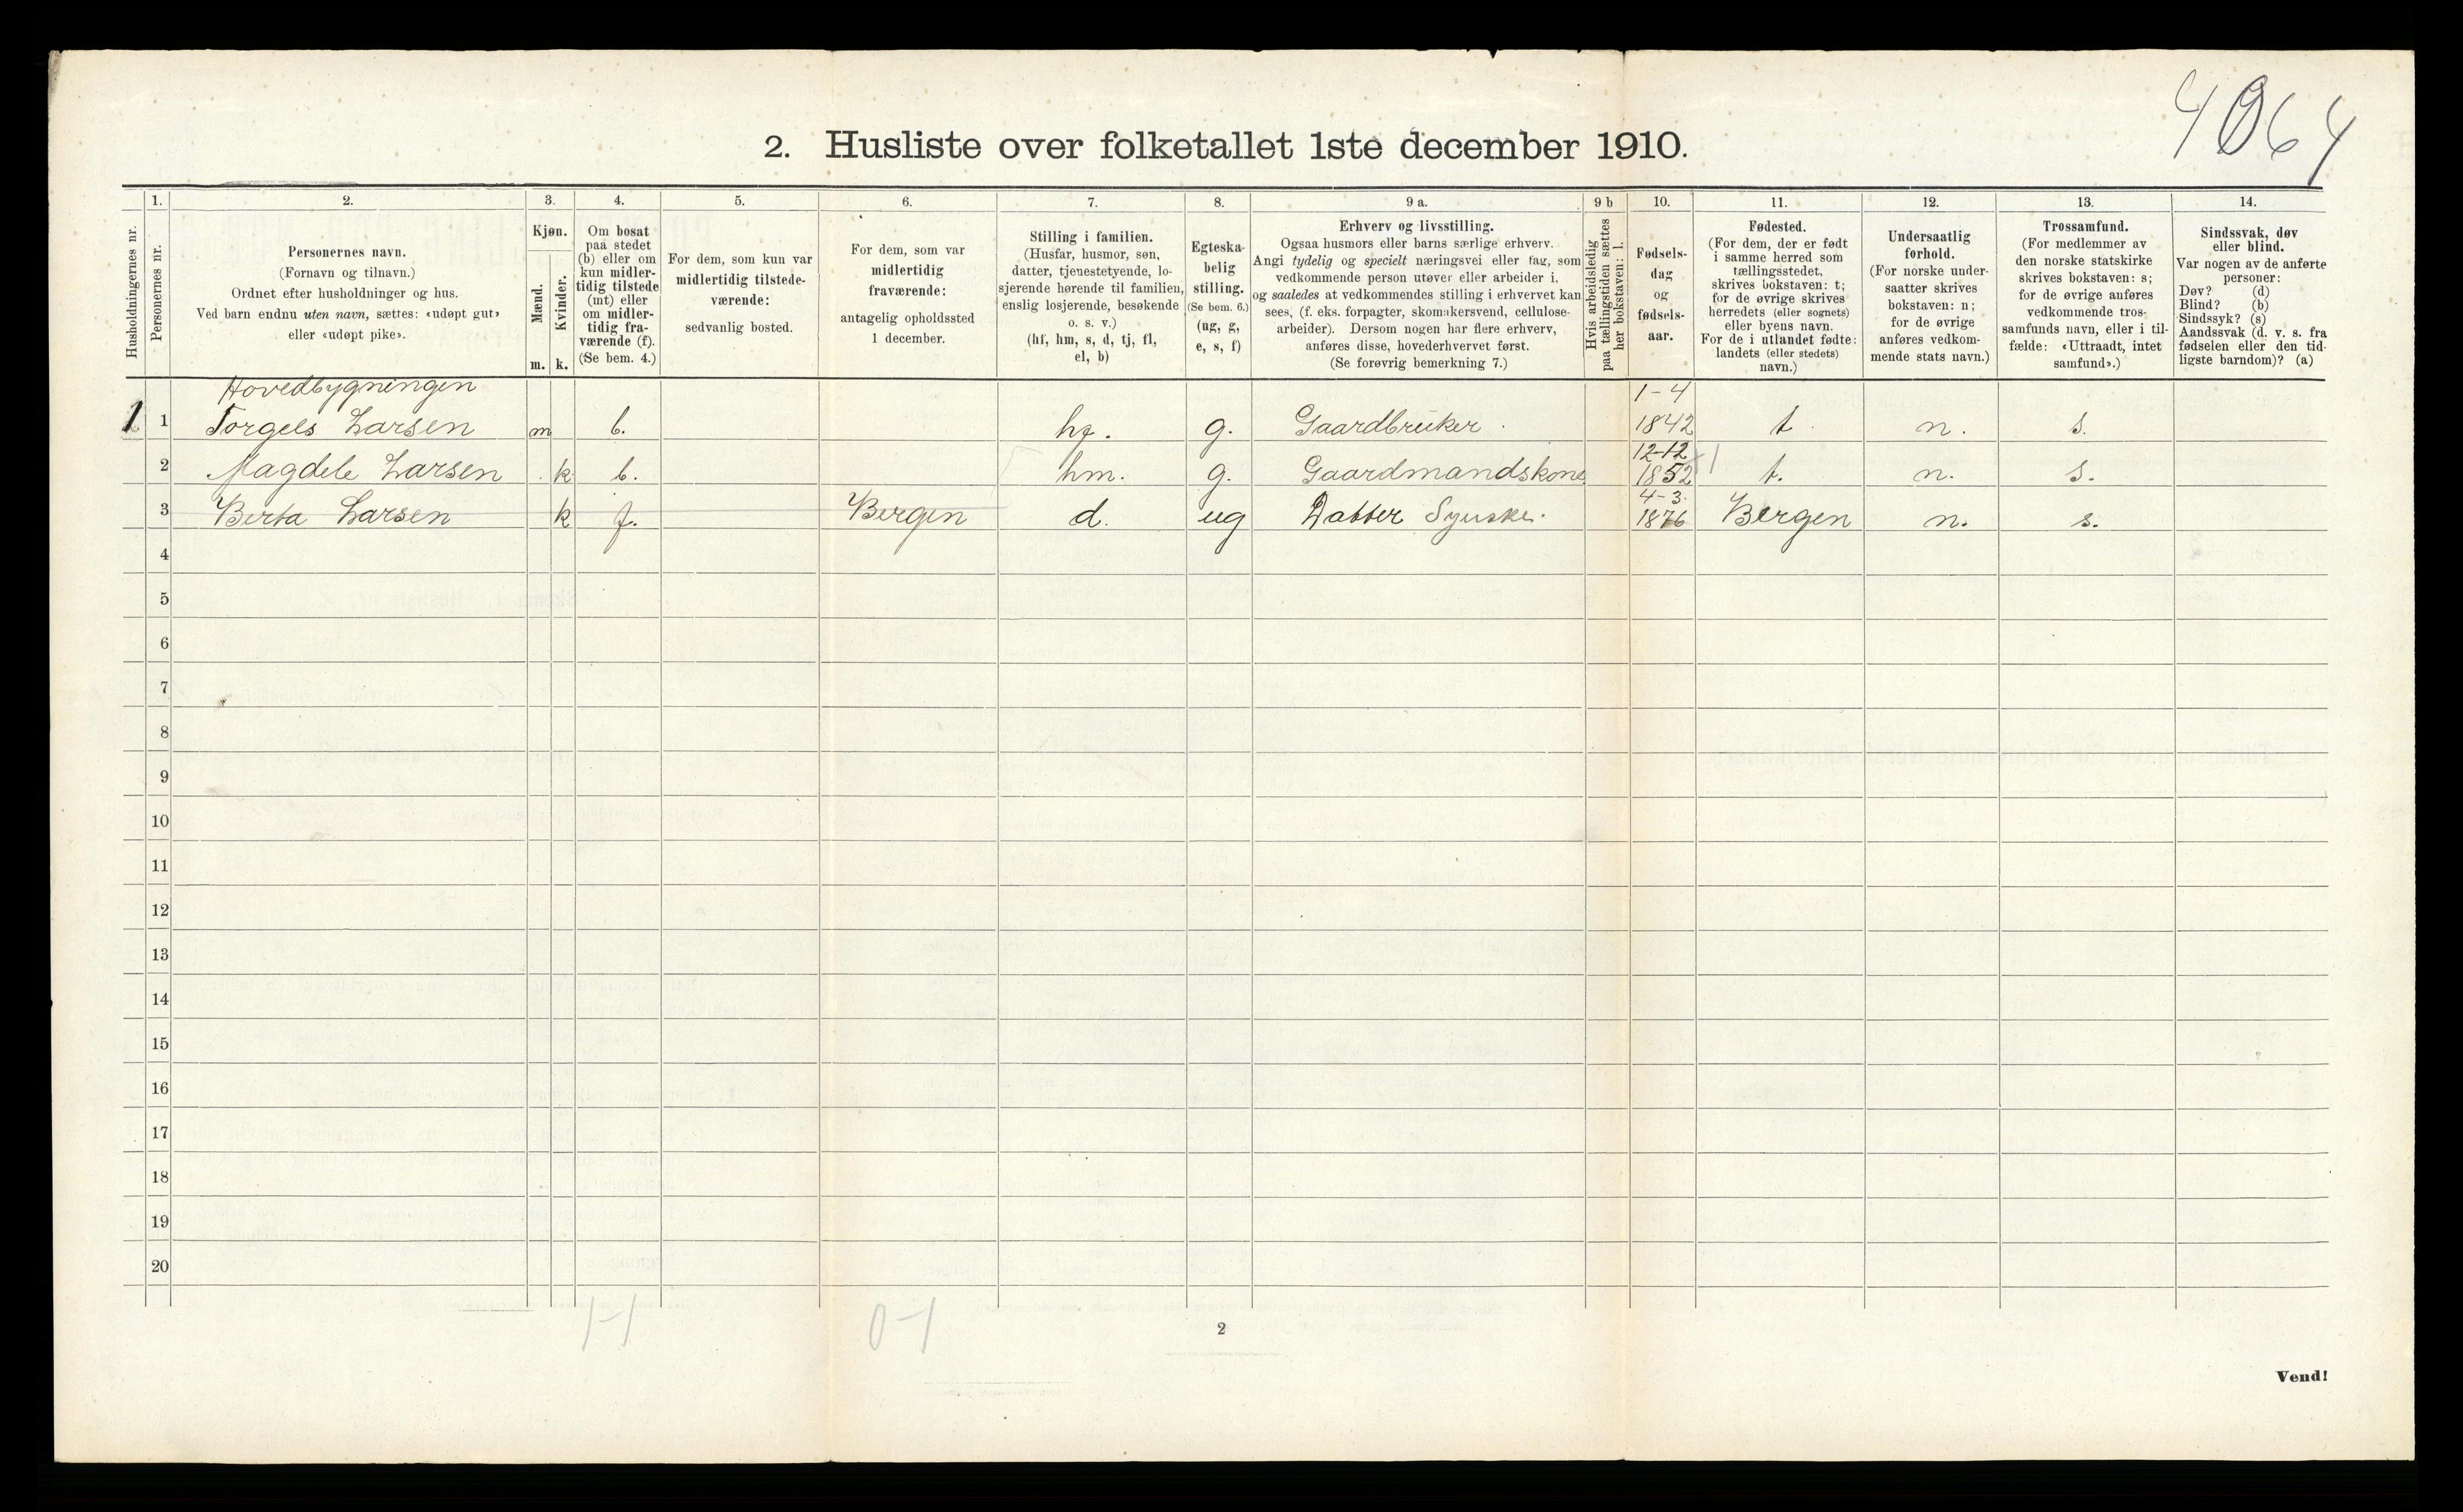 4064
2. Husliste over folketallet 1ste december 1910.
1. 2. 3. 4. 5. 6. 7. 8. 9 a. 9 b 10. 11. 12. 13. 14.
Husholdningernes nr.
Personernes nr.
Personernes navn.
(Fornavn og tilnavn.)
Ordnet efter husholdninger og hus.
Ved barn endnu uten navn, sættes: «udøpt gut»
eller «udøpt pike».
Kjøn.
Mænd.
Kvinder.
m. k.
Om bosat
paa stedet
(b) eller om
kun midler-
tidig tilstede
(mt) eller
om midler-
tidig fra-
værende (f).
(Se bem. 4.)
For dem, som kun var
midlertidig tilstede-
værende:
sedvanlig bosted.
For dem, som var
midlertidig
fraværende:
antagelig opholdssted
1 december.
Stilling i familien.
(Husfar, husmor, søn,
datter, tjenestetyende, lo-
sjerende hørende til familien,
enslig losjerende, besøkende
o. s. v.)
(hf, hm, s, d, tj, fl,
el, b)
Egteska-
belig
stilling.
(Se bem. 6.)
(ug, g,
e, s, f)
Erhverv og livsstilling.
Ogsaa husmors eller barns særlige erhverv.
Angi tydelig og specielt næringsvei eller fag, som
vedkommende person utøver eller arbeider i,
og saaledes at vedkommendes stilling i erhvervet kan
sees, (f. eks. forpagter, skomakersvend, cellulose-
arbeider). Dersom nogen har flere erhverv,
anføres disse, hovederhvervet først.
(Se forøvrig bemerkning 7.)
Hvis arbeidsledig
paa tællingstiden sættes
her bokstaven: l.
Fødsels-
dag
og
fødsels-
aar.
Fødested.
(For dem, der er født
i samme herred som
tællingsstedet,
skrives bokstaven: t;
for de øvrige skrives
herredets (eller sognets)
eller byens navn.
For de i utlandet fødte:
landets (eller stedets)
navn.)
Undersaatlig
forhold.
(For norske under-
saatter skrives
bokstaven: n;
for de øvrige
anføres vedkom-
mende stats navn.)
Trossamfund.
(For medlemmer av
den norske statskirke
skrives bokstaven: s;
for de øvrige anføres
vedkommende tros-
samfunds navn, eller i til-
fælde: «Uttraadt, intet
samfund».)
Sindssvak, døv
eller blind.
Var nogen av de anførte
personer:
Døv? (d)
Blind? (b)
Sindssyk? (s)
Aandssvak (d. v. s. fra
fødselen eller den tid-
ligste barndom)? (a)
Hovedbygningen 1-4
1 1 Torgels Larsen m b. hf. g. Gaardbruker 1842 t. n. s.
12-12
2 Magdele Larsen k b. hm. g. Gaardmandskone 1852 t. n. s.
4-3.
3 Berta Larsen k f. Bergen d. ug Datter Syerske. 1876 Bergen n. s.
4
5
6
7
8
9
10
11
12
13
14
15
16
17
18
19
20
1-1 0-1
2
Vend!